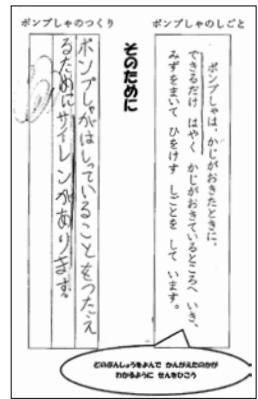 ポンプしゃのしごと
ポンプしゃは、かじがおきたときに、
できるだけ はやく かじがおきているところへ いき、
みずをまいて ひをけす しごとを して います。
そのために
ポンプしゃのつくり
ポンプしゃがはしっていることをつたえ
るためにサイレンがあります。
どのぶんしょうをよんで かんがえたのかが
わかるように せんをひこう